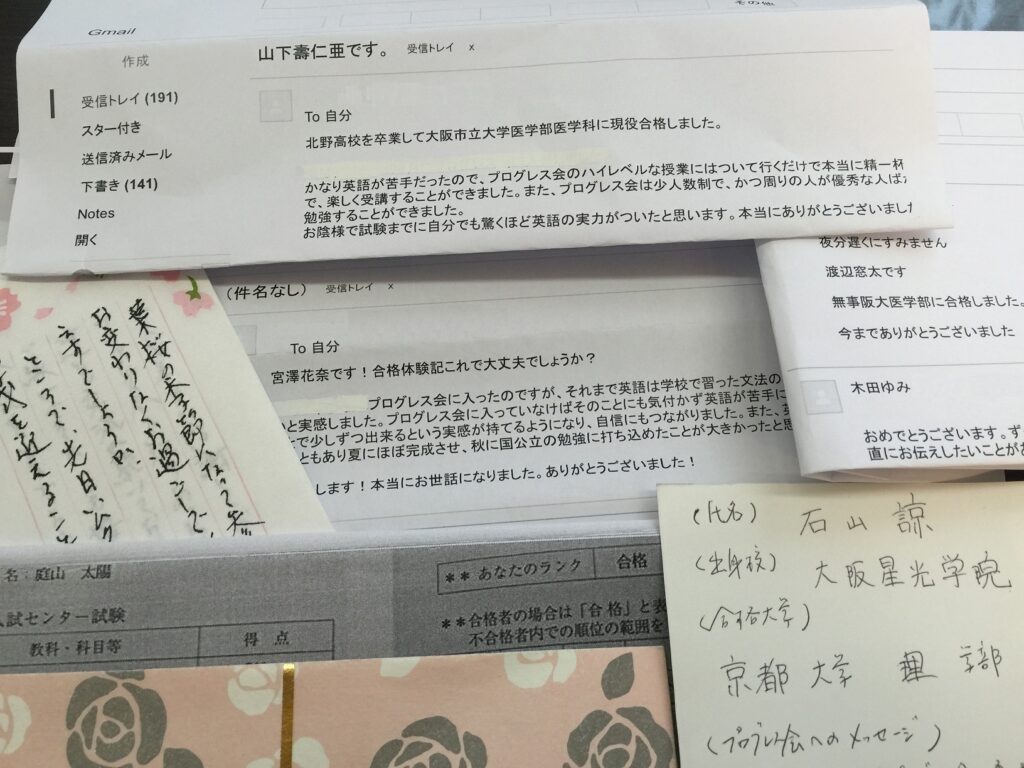 その他
Gmail
作成
受信トレイ (191)
スター付き
送信済みメール
下書き (141)
Notes
開く
山下壽仁亜です。 受信トレイ x
To 自分
北野高校を卒業して大阪市立大学医学部医学科に現役合格しました。
かなり英語が苦手だったので、プログレス会のハイレベルな授業にはついて行くだけで本当に精一杯
で、楽しく受講することができました。また、プログレス会は少人数制で、かつ周りの人が優秀な人ば
勉強することができました。
お陰様で試験までに自分でも驚くほど英語の実力がついたと思います。本当にありがとうございまし
(件名なし) 受信トレイ x
To 自分
宮澤花奈です！合格体験記これで大丈夫でしょうか？
プログレス会に入ったのですが、それまで英語は学校で習った文法の
いと実感しました。プログレス会に入っていなければそのことにも気付かず英語が苦手に
で少しずつ出来るという実感が持てるようになり、自信にもつながりました。また、英
ともあり夏にほぼ完成させ、秋に国公立の勉強に打ち込めたことが大きかったと思
します！本当にお世話になりました。ありがとうございました！
夜分遅くにすみません
渡辺窓太です
無事阪大医学部に合格しました。
今までありがとうございました
木田ゆみ
おめでとうございます。ず
直にお伝えしたいことが
葉桜の季節になって参
お変わりなくお過ごしで
ますでしょうか。
ところで、先日、
を迎えること
名：庭山 太陽
入試センター試験
教科・科目等 得点
** あなたのランク 合格
**合格者の場合は「合格」と表
不合格者内での順位の範囲を
(氏名) 石山 諒
(出身校) 大阪星光学院
(合格大学)
京都大学 理学部
(プログレス会へのメッセージ)